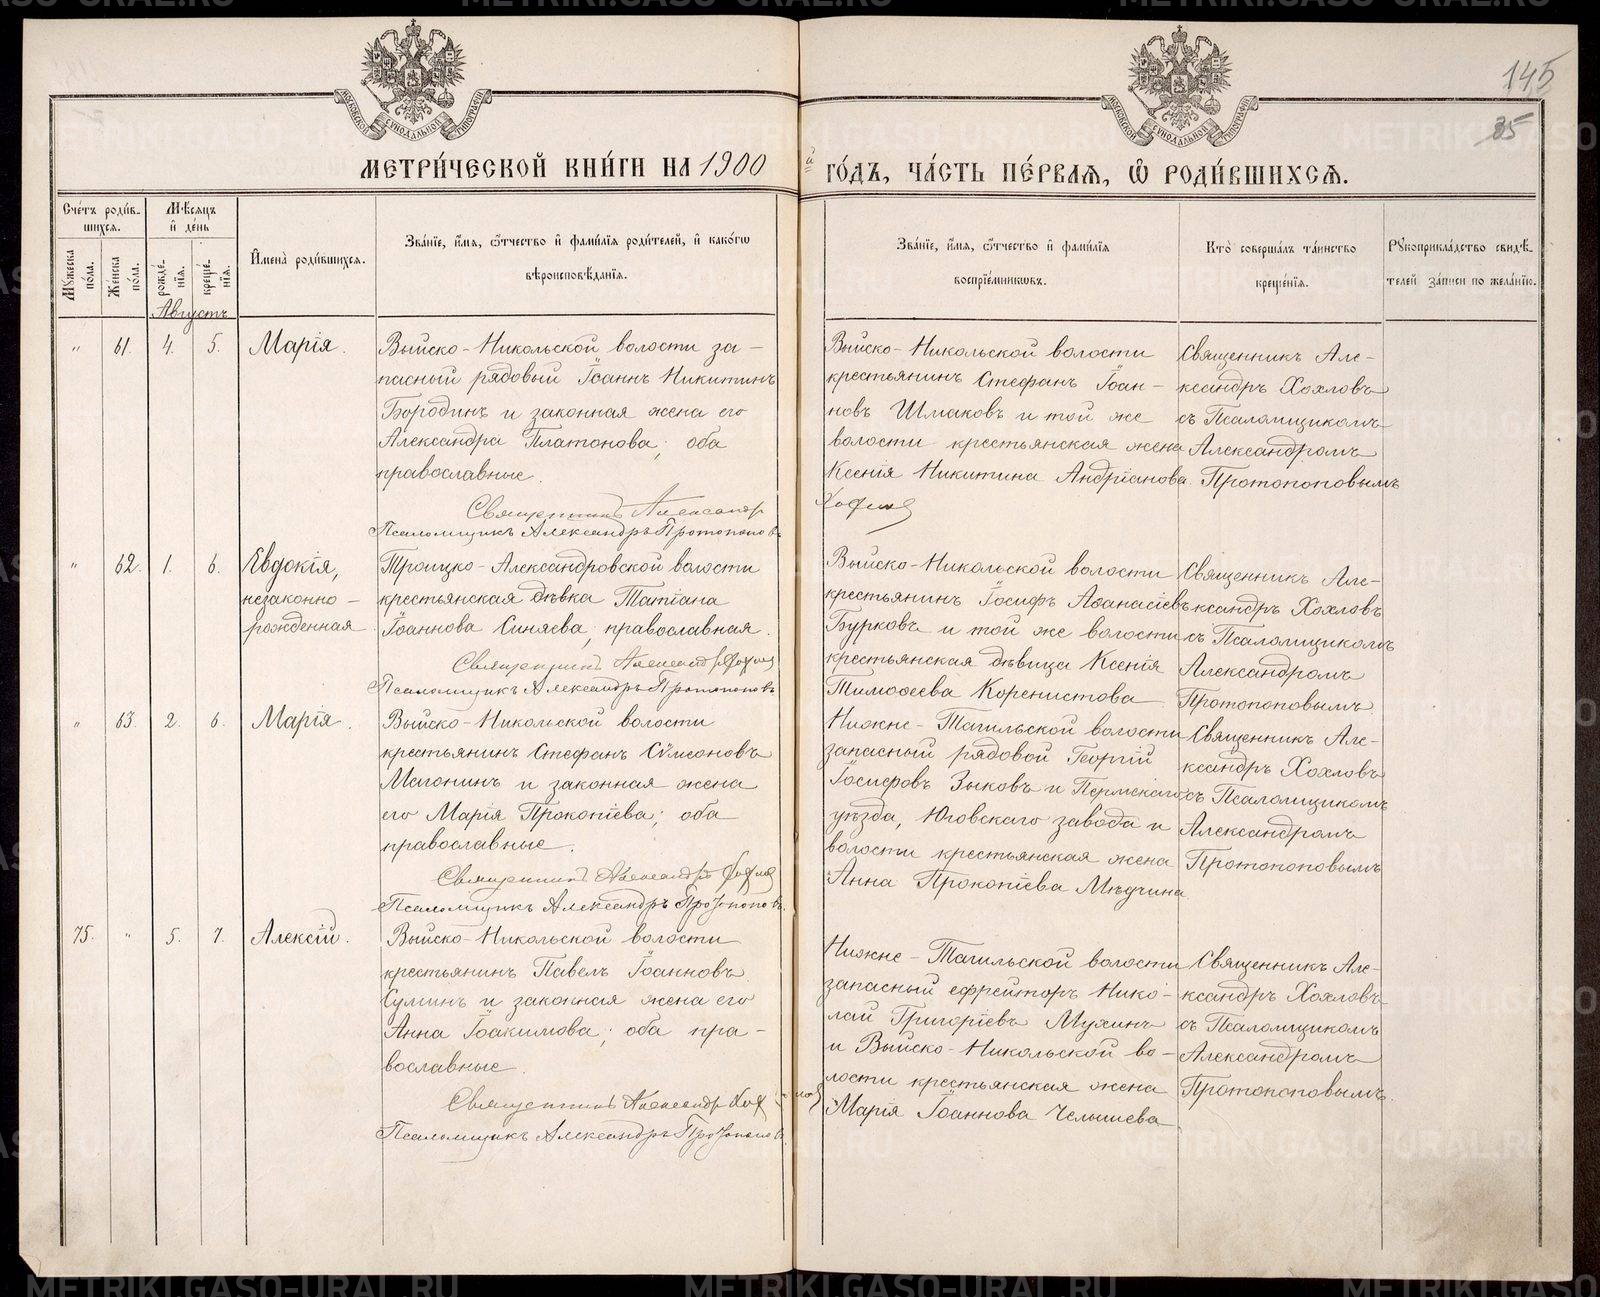 145
35
МЕТРИ́ЧЕСКОЙ КНИ́ГИ НА 1900й ГО́ДЪ, ЧА́СТЬ ПЕ́РВАЯ, Ѽ РОДИ́ВШИХСЯ.
Сче́тъ роди́в-
шихся.
Мѣ́сяцъ
и҆ де́нь
Му́жеска
по́ла.
Же́нска
по́ла.
рожде́-
нїя.
креще́-
нїя.
И҆мена̀ роди́вшихся.
Зва́нїе, и҆́мя, ѻ҆́тчество и҆ фами́лїя роди́телей, и҆ како́гѡ
вѣроисповѣ́данїя.
Зва́нїе, и҆́мя, ѻ҆́тчество и҆ фами́лїя
воспрїе́мниковъ.
Кто̀ соверша́лъ та́инство
креще́нїя.
Рꙋкоприкла́дство свидѣ́-
телей за́писи по жела́нїю.
Августъ
" 61. 4. 5. Марія.
Выйско-Никольской волости за-
пасный рядовый Іоаннъ Никитинъ
Бородинъ и законная жена его
Александра Платонова; оба
православные.
Священникъ Александр
Псаломщикъ Александръ Протопоповъ
Выйско-Никольской волости
крестьянинъ Стефанъ Іоан-
новъ Шмаковъ и той же
волости крестьянская жена
Ксенія Никитина Андріанова.
Священникъ Але-
ксандръ Хохловъ
съ Псаломщикомъ
Александромъ
Протопоповымъ
" 62. 1. 6. Евдокія,
незаконно-
рожденная
Троицко-Александровской волости
крестьянская дѣвка Татіана
Іоаннова Синяева, православная.
Священникъ Александръ Хохлов
Псаломщикъ Александръ Протопоповъ
Выйско-Никольской волости
крестьянинъ Іосифъ Аѳанасіевъ
Бурковъ и той же волости
крестьянская дѣвица Ксенія
Тимоѳеева Коренистова
Священникъ Але-
ксандръ Хохловъ
съ Псаломщикомъ
Александромъ
Протопоповымъ
" 63. 2. 6. Марія.
Выйско-Никольской волости
крестьянинъ Стефанъ Сѵмеоновъ
Мегонинъ и законная жена
его Марія Прокопіева; оба
православные.
Священникъ Александръ Хохлов
Псаломщикъ Александръ Протопоповъ
Нижне-Тагильской волости
запасный рядовой Георгій
Іосифовъ Зыковъ и Пермскаго
уѣзда, Юговскаго завода и
волости крестьянская жена
Анна Прокопіева Мѣдчина
Священникъ Але-
ксандръ Хохловъ
съ Псаломщикомъ
Александромъ
Протопоповымъ
75. " 5. 7. Алексій.
Выйско-Никольской волости
крестьянинъ Павелъ Іоанновъ
Суминъ и законная жена его
Анна Іоакимова; оба пра-
вославные.
Священникъ Александр Хохлов
Псаломщикъ Александръ Протопоповъ
Нижне-Тагильской волости
запасный ефрейторъ Нико-
лай Григоріевъ Мухинъ
и Выйско-Никольской во-
лости крестьянская жена
Марія Іоаннова Челышева
Священникъ Але-
ксандръ Хохловъ
съ Псаломщикомъ
Александромъ
Протопоповымъ.
METRIKI.GASO-URAL.RU